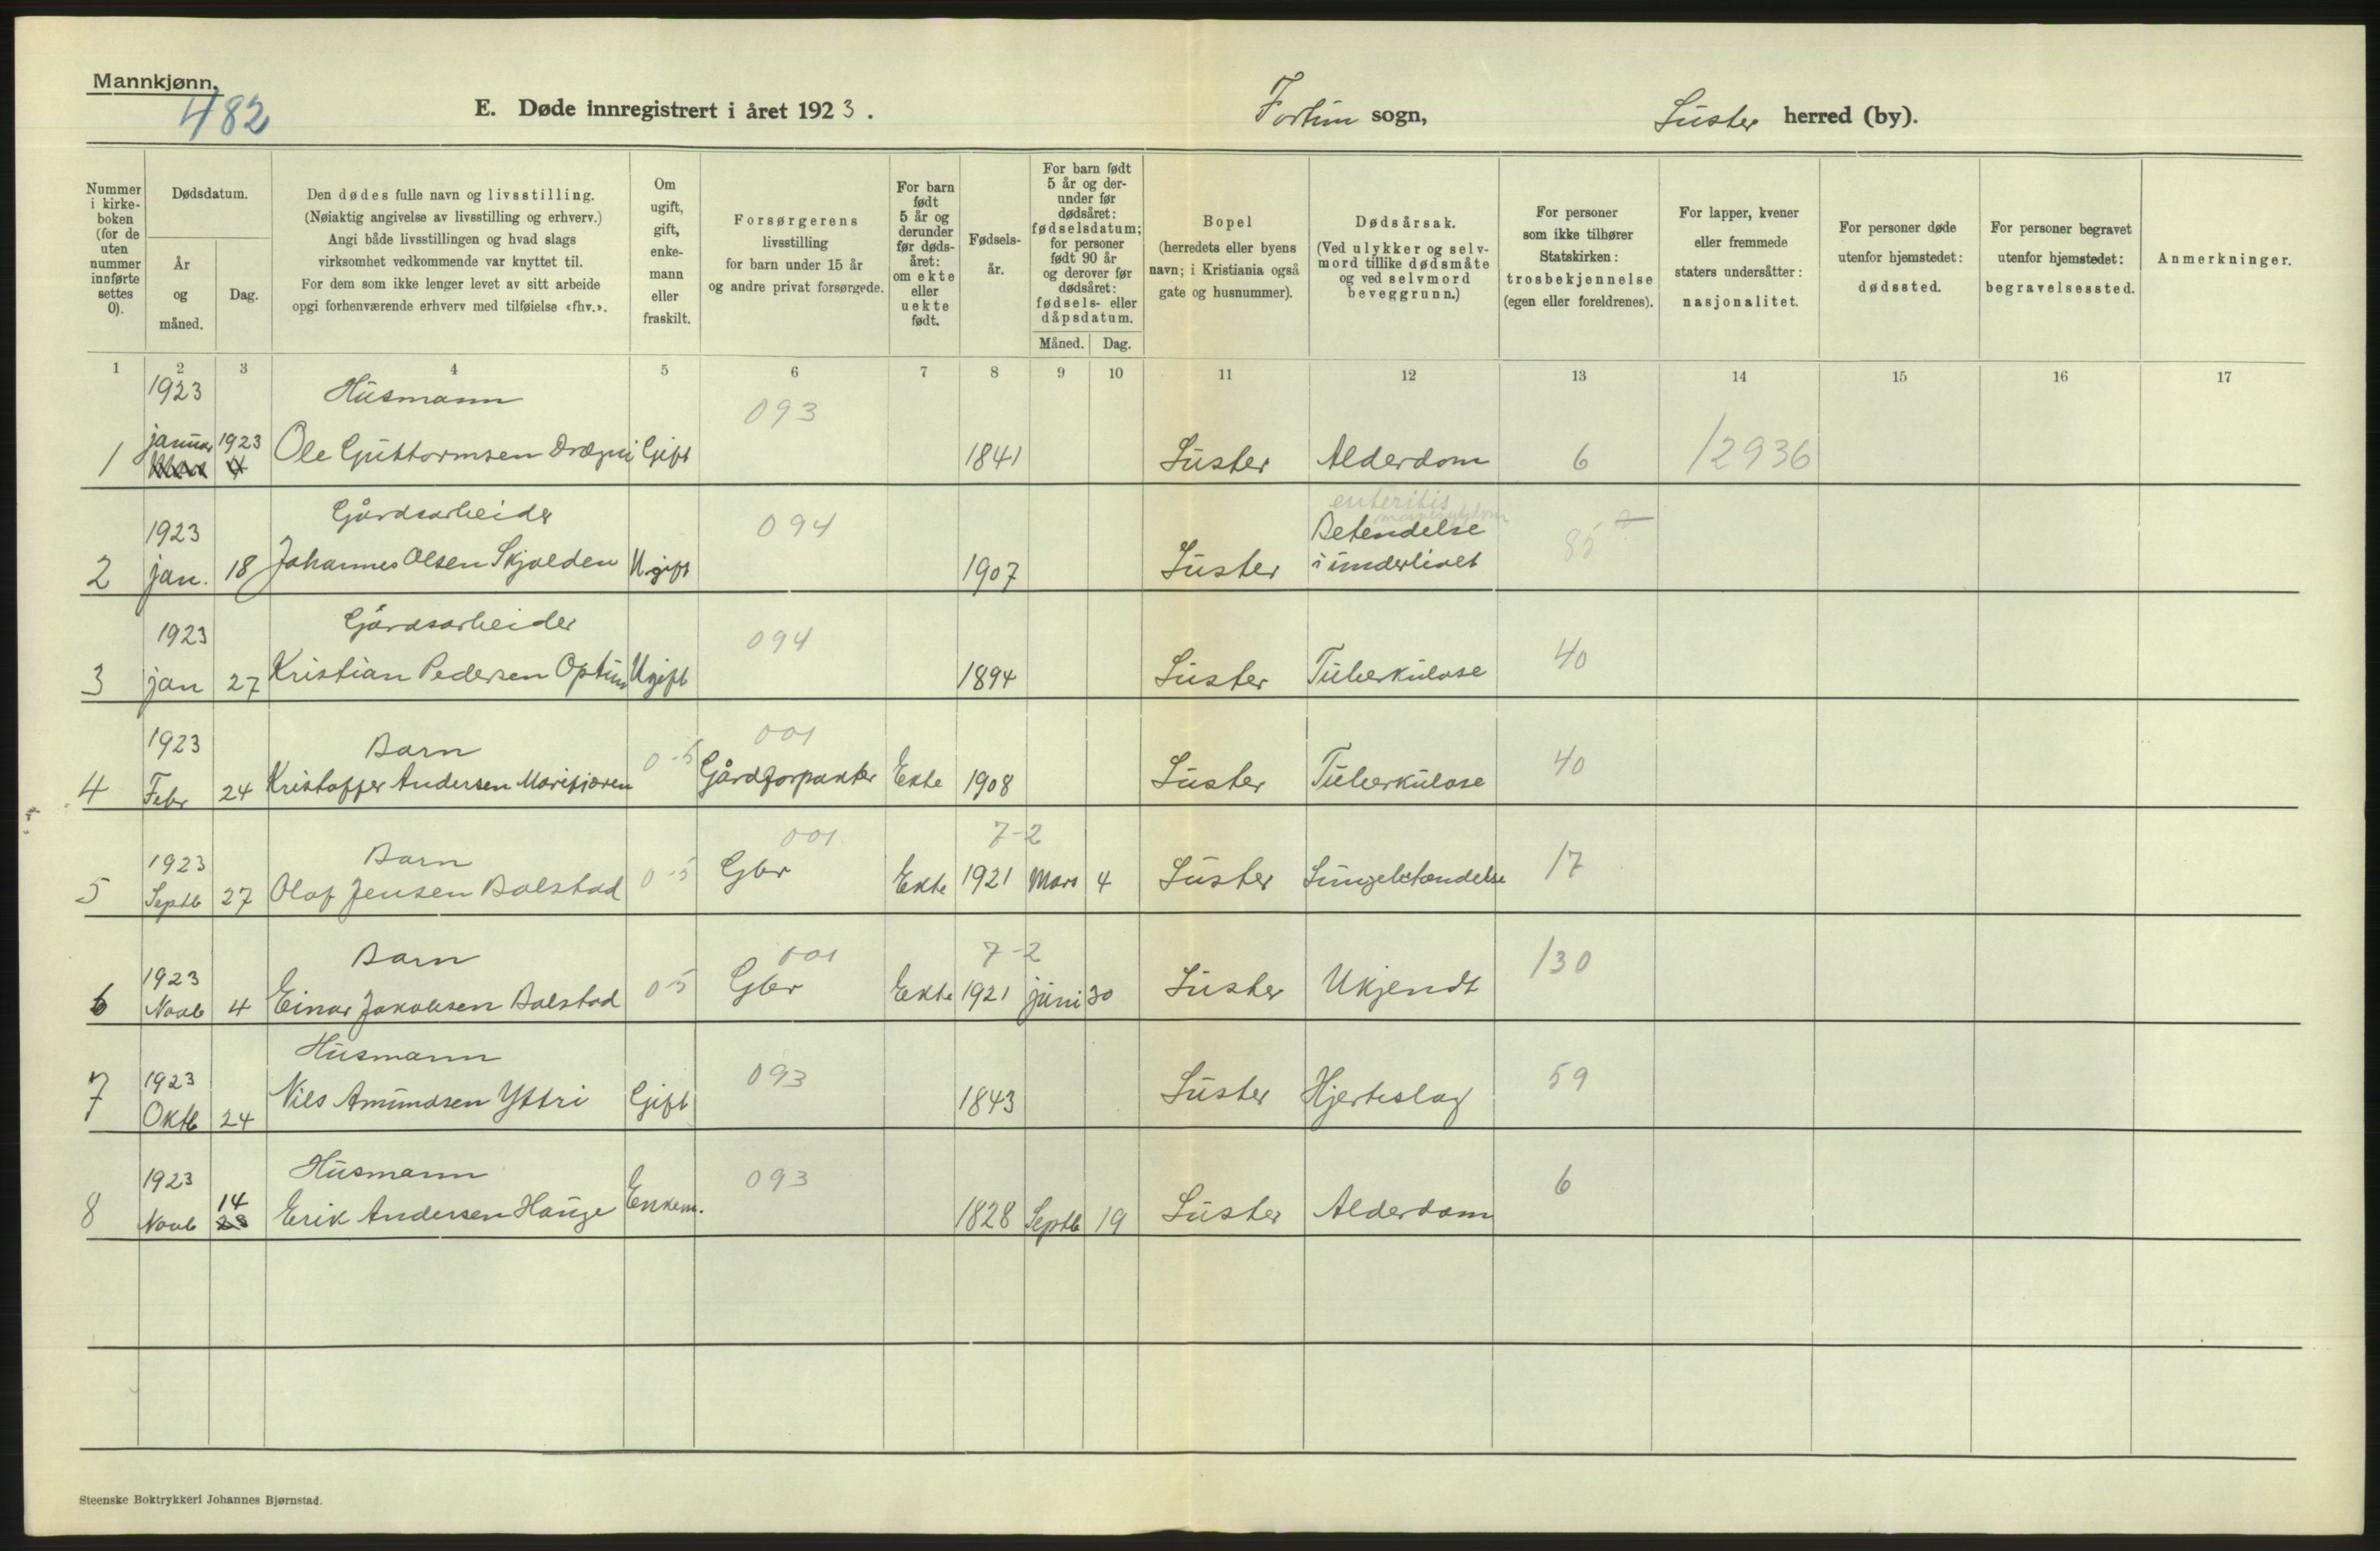 Mannkjønn.
482
E. Døde innregistrert i året 1923.
Fortun sogn,
Luster herred (by).
Nummer i kirke- boken (for de uten nummer innførte settes 0).
Dødsdatum.
År og måned.
Dag.
Den dødes fulle navn og livsstilling.
(Nøiaktig angivelse av livsstilling og erhverv.)
Angi både livsstillingen og hvad slags
virksomhet vedkommende var knyttet til.
For dem som ikke lenger levet av sitt arbeide
opgi forhenværende erhverv med tilføielse «fhv.».
Om ugift, gift, enke- mann eller fraskilt.
Forsørgerens
livsstilling
for barn under 15 år
og andre privat forsørgede.
For barn født 5 år og derunder før døds- året: om ekte eller uekte født.
Fødsels- år.
For barn født 5 år og der- under før dødsåret: fødselsdatum; for personer født 90 år og derover før dødsåret: fødsels- eller dåpsdatum.
Måned. Dag.
Bopel
(herredets eller byens
navn; i Kristiania også
gate og husnummer).
Dødsårsak.
(Ved ulykker og selv-
mord tillike dødsmåte
og ved selvmord
beveggrunn.)
For personer
som ikke tilhører
Statskirken:
trosbekjennelse
(egen eller foreldrenes).
For lapper, kvener
eller fremmede
staters undersåtter:
nasjonalitet.
For personer døde
utenfor hjemstedet:
dødssted.
For personer begravet
utenfor hjemstedet:
begravelsessted.
Anmerkninger.
1 2 3 4 5 6 7 8 9 10 11 12 13 14 15 16 17
1923 Husmann 093
1 januar 1923 Ole Guttormsen Drægni Gift 1841 Luster Alderdom 6 12936
1923 Gårdsarbeider 094 enteritis
2 jan. 18 Johannes Olsen Skjolden Ugift 1907 Luster Betendelse i underlivet 85 ?
1923 Gårdsarbeider 094
3 jan 27 Kristian Pedersen Optun Ugift 1894 Luster Tuberkulose 40
1923 Barn 001
4 Febr 24 Kristoffer Andersen Marifjøren 0-5 Gårdforpakter Ekte 1908 Luster Tuberkulose 40
1923 Barn 001 7-2
5 Septb 27 Olaf Jensen Bolstad 0-5 Gbr Ekte 1921 Mars 4 Luster Lungebetændelse 17
1923 Barn 001 7-2
6 Novb 4 Einar Jakobsen Bolstad 0-5 Gbr Ekte 1921 juni 30 Luster Ukjendt 130
1923 Husmann 093
7 Oktb 24 Nils Amundsen Yttri Gift 1843 Luster Hjerteslag 59
1923 Husmann 093
8 Novb 14 28 Erik Andersen Hauge Enkem. 1828 Septb 19 Luster Alderdom 6
Steenske Boktrykkeri Johannes Bjørnstad.